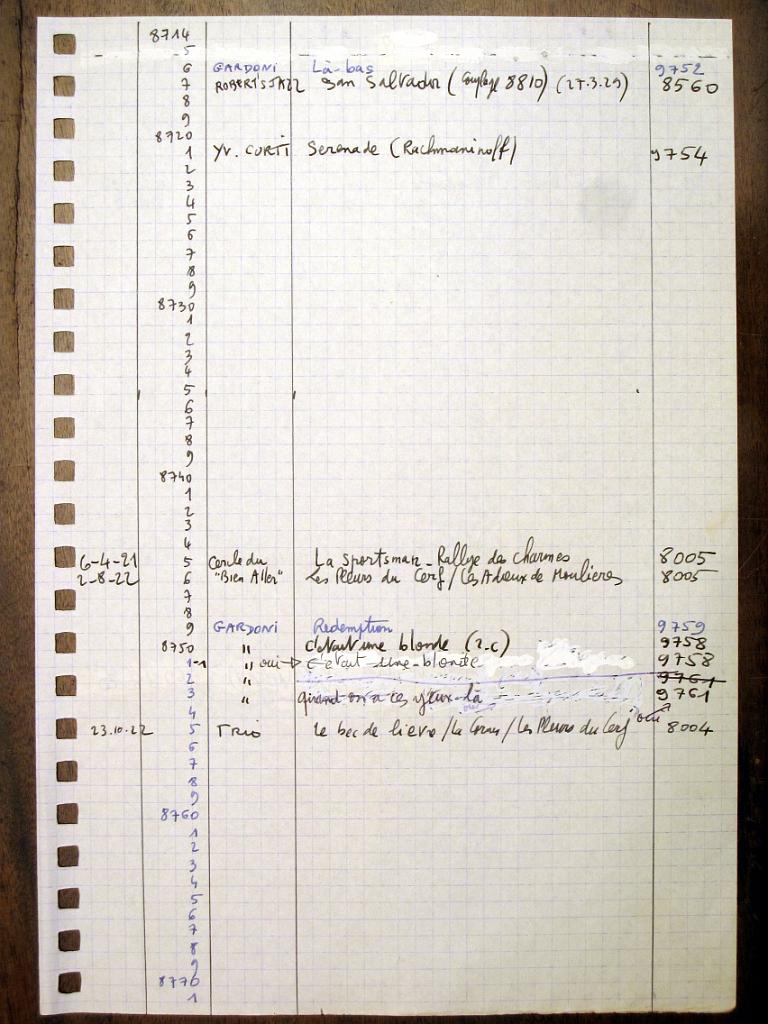 8714
5
6 GARDONI Là-bas 9752
7 ROBERT'S JAZZ San Salvador (Couplage 8810) (27.3.29) 8560
8
9
8720
1 YV. CURTI Serenade (Rachmaninoff) 9754
2
3
4
5
6
7
8
9
8730
1
2
3
4
5
6
7
8
9
8740
1
2
3
4
6-4-21 5 Cercle du La Sportsman - Rallye des charmes 8005
2-8-22 6 "Bien Aller" Les Pleurs du Cerf / Les Adieux de Moulieres 8005
7
8
9 GARDONI Redemption 9759
8750 " C'etait une blonde (2-c) 9758
1-1 " oui → C'etait une blonde 9758
2 " 9761
3 " quand on a ces yeux-là 9761
4 oui
23.10.22 5 TRIO Le bec de lievre / La / Les Pleurs du Cerf 8004
6
7
8
9
8760
1
2
3
4
5
6
7
8
9
8770
1